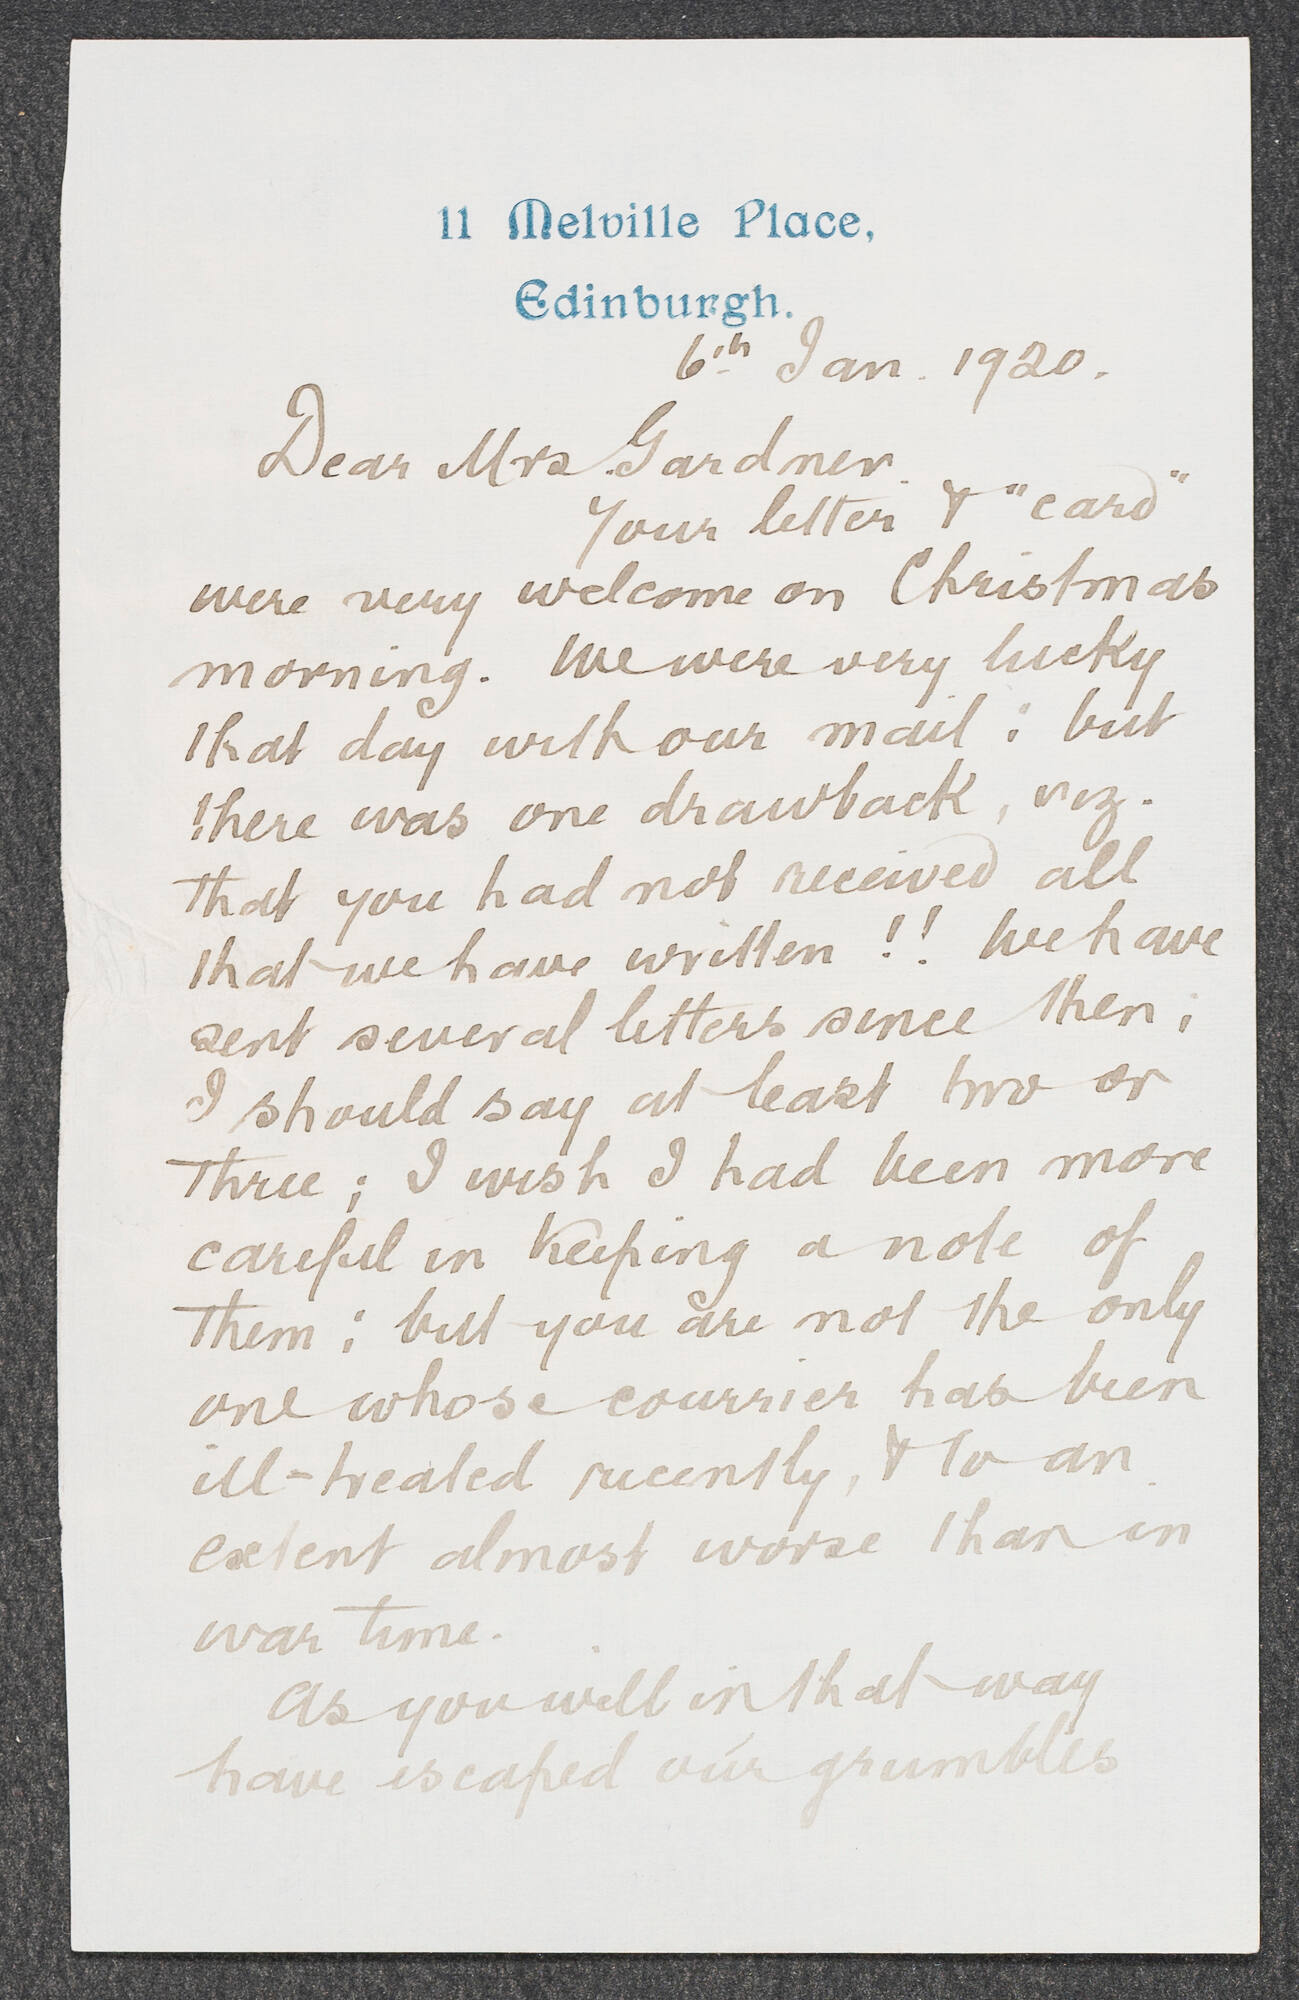 11 Melville Place,
Edinburgh.
6th Jan. 1920.
Dear Mrs Gardner.
Your letter & "card"
were very welcome on Christmas
morning. We were very lucky
that day with our mail; but
there was one drawback, viz.
that you had not received all
that we have written!! We have
sent several letters since then;
I should say at least two or
three; I wish I had been more
careful in keeping a note of
them; but you are not the only
one whose courrier has been
ill-treated recently, & to an
extent almost worse than in
war time.
As you will in that way
have escaped our grumbles